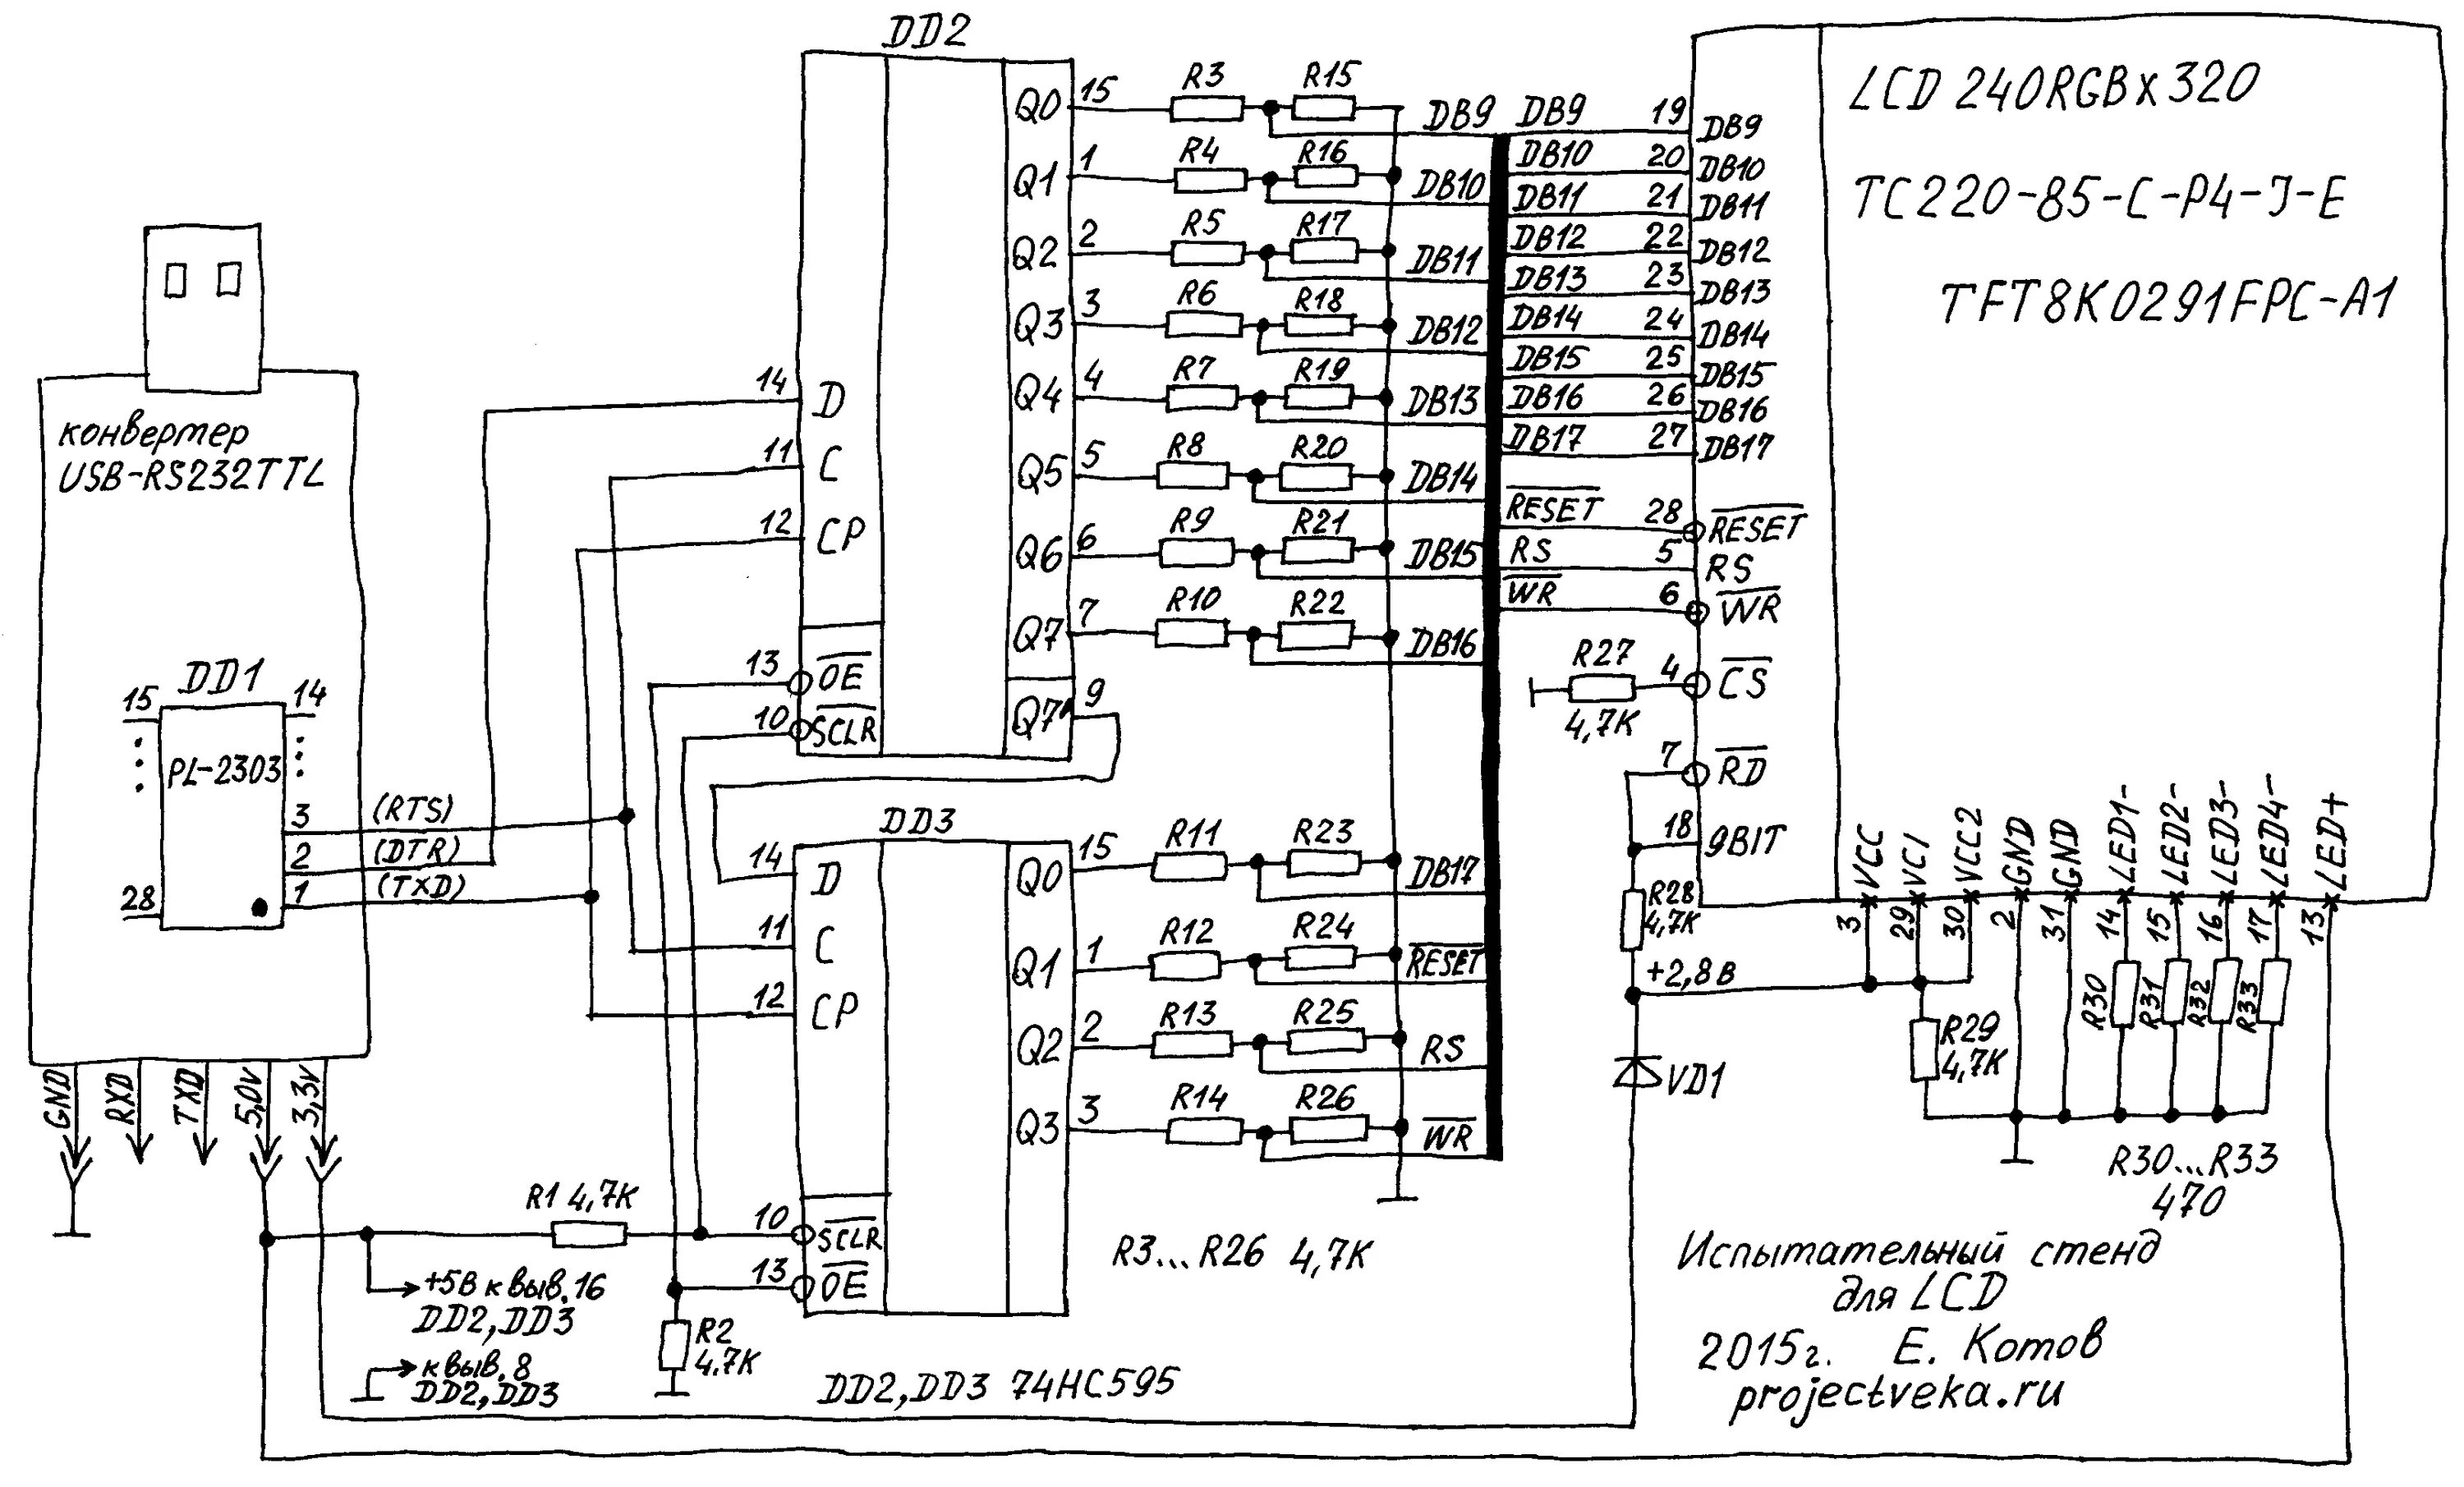 DD2
Q0 15
Q1 1
Q2 2
Q3 3
Q4 4
Q5 5
Q6 6
Q7 7
Q7' 9
14 D
11 C
12 CP
13 OE
10 SCLR
R3 R15 DB9
R4 R16 DB10
R5 R17 DB11
R6 R18 DB12
R7 R19 DB13
R8 R20 DB14
R9 R21 DB15
R10 R22 DB16
LCD 240RGBx320
TC220-85-C-P4-J-E
TFT8K0291FPC-A1
DB9 19 DB9
DB10 20 DB10
DB11 21 DB11
DB12 22 DB12
DB13 23 DB13
DB14 24 DB14
DB15 25 DB15
DB16 26 DB16
DB17 27 DB17
RESET 28 RESET
RS 5 RS
WR 6 WR
R27 4 CS
4,7К
7 RD
18 9BIT
R28
4,7К
+2,8В
VD1
VCC 3
VC1 29
VCC2 30
GND 2
GND 31
LED1- 14
LED2- 15
LED3- 16
LED4- 17
LED+ 13
R29
4,7К
R30
R31
R32
R33
R30...R33
470
конвертер
USB-RS232TTL
DD1
15 14
PL-2303
3 (RTS)
2 (DTR)
28 1 (TXD)
GND
RXD
TXD
5,0v
3,3v
DD3
14 D
11 C
12 CP
10 SCLR
13 OE
Q0 15
Q1 1
Q2 2
Q3 3
R11 R23 DB17
R12 R24 RESET
R13 R25 RS
R14 R26 WR
R1 4,7К
+5В к выв.16
DD2,DD3
к выв.8
DD2,DD3
R2
4,7К
R3...R26 4,7К
DD2,DD3 74HC595
Испытательный стенд
для LCD
2015г. Е. Котов
projectveka.ru